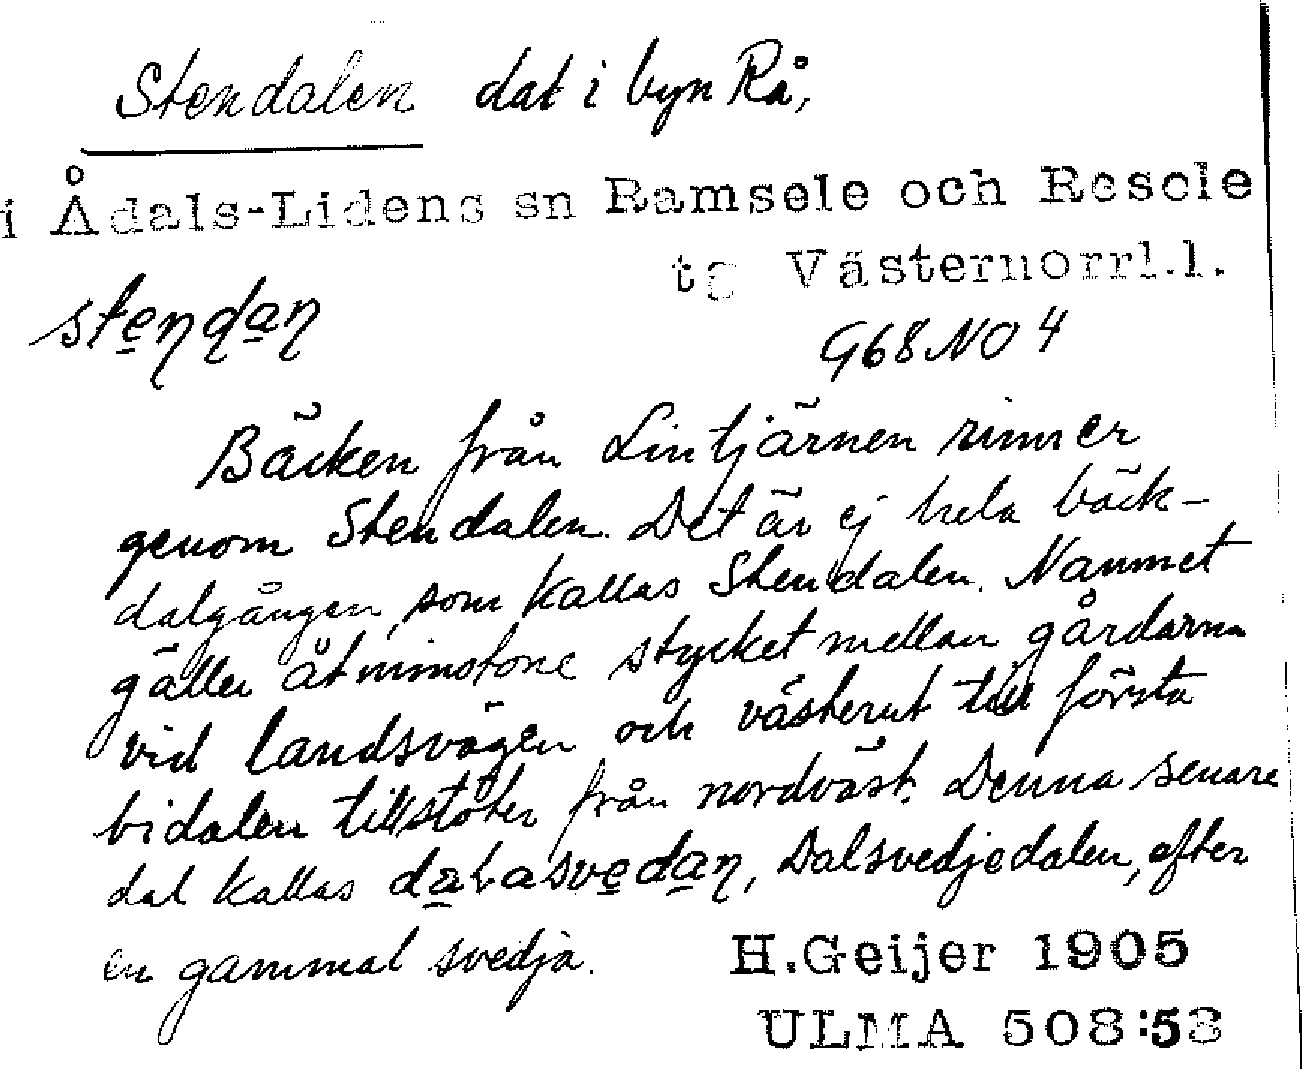 Stendalen dal i byn Rå,
i Ådals-Lidens sn Ramsele och Resele
tg Västernorrl.l.
stẹŋdạŋ
968 NO 4
Bäcken från Lintjärnen rinner
genom Stendalen. Det är ej hela bäck-
dalgången, som kallas Stendalen. Namnet
gäller åtminstone stycket mellan gårdarna
vid landsvägen och västerut till första
bidalen tillstöter från nordväst. Denna senare
dal kallas Dalsvedjedalen, efter
en gammal svedja.
H.Geijer 1905
ULMA 508:58